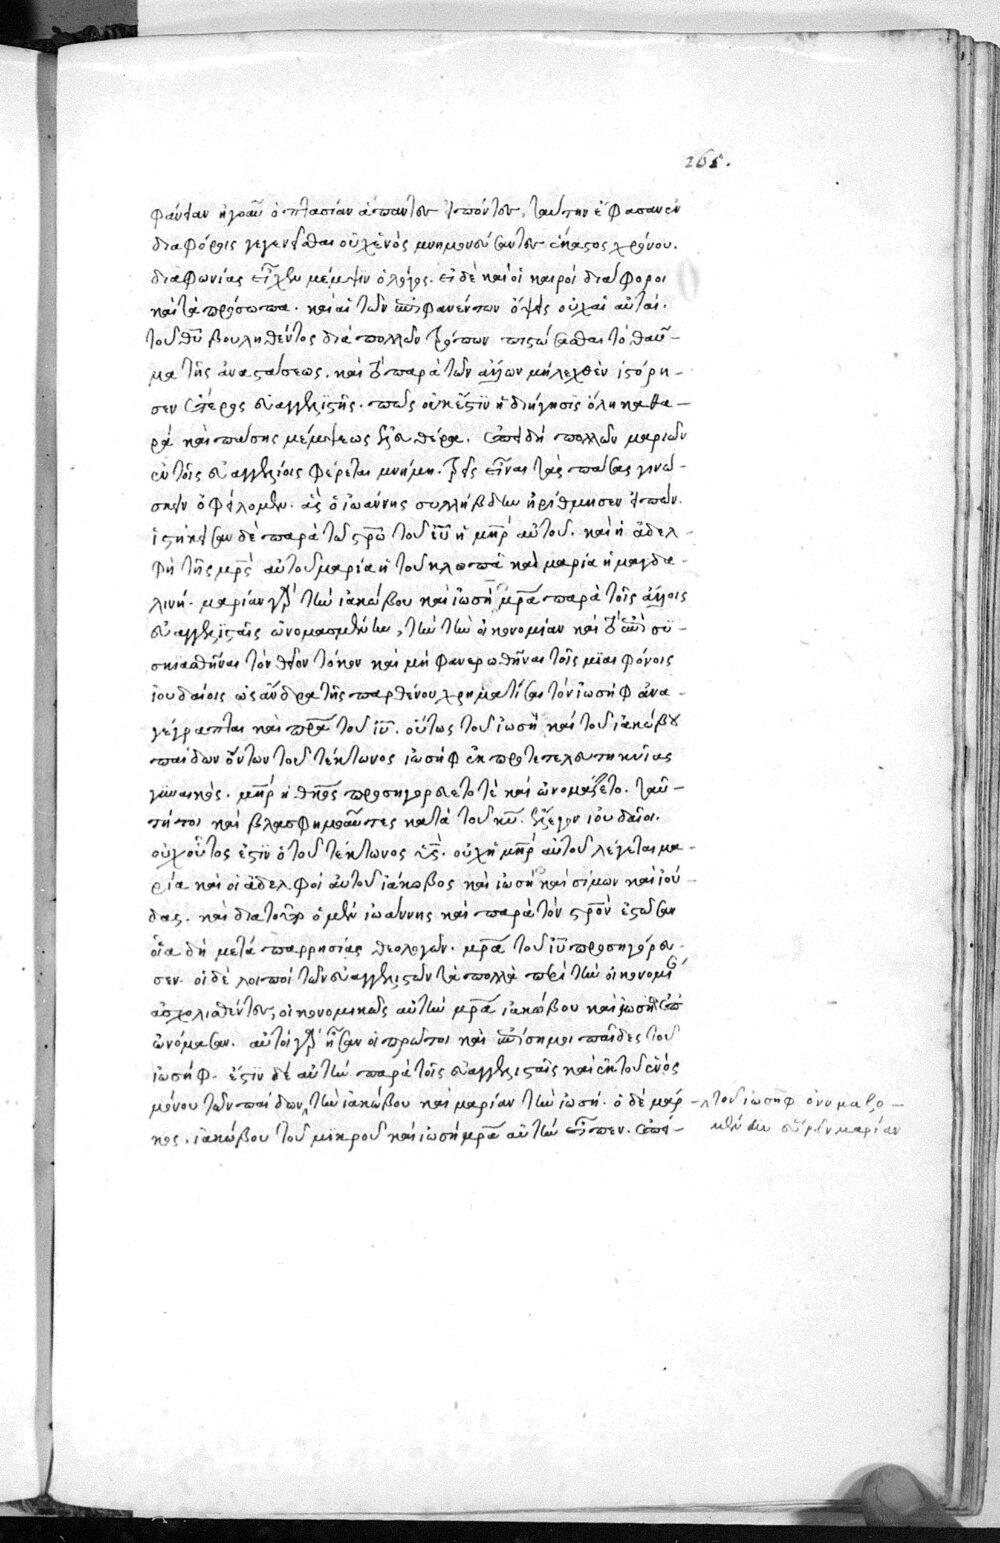 165.
φάνειαν ἢ γοῦν ὀπτασίαν ἁπάντων εἰπόντων, ταύτην ἔφασαν ἐν
διαφόροις γεγενῆσθαι οὐχ ἑνὸς μνημονεύσαντος ἕκαστος χρόνου.
διαφωνίας εἶχεν μέμψιν ὁ λόγος. εἰ δὲ καὶ οἱ καιροὶ διάφοροι
καὶ τὰ πρόσωπα. καὶ αἱ τῶν ἐπιφανέντων ὄψεις οὐχ αἱ αὐταί.
τοῦ θυ βουληθέντος διὰ πολλῶν τρόπων πιστώσασθαι τὸ θαῦ-
μα τῆς ἀναστάσεως. καὶ τὸ παρὰ τῶν ἄλλων μὴ λεχθὲν ἱστόρη-
σεν ἕτερος εὐαγγελιστής. πῶς οὐκ ἔστιν ἡ διήγησις ὅλη καθα-
ρὰ καὶ πάσης μέμψεως ἐλευθέρα. ἐπειδὴ πολλῶν μαριῶν
ἐν τοῖς εὐαγγελίοις φέρεται μνήμη. τρεῖς εἶναι τὰς πάσας γινώ-
σκειν ὀφείλομεν. ἃς ὁ ἰωάννης συλλήβδην ἠρίθμησεν εἰπών.
εἱστήκεισαν δὲ παρὰ τῷ στρῶ τοῦ ιυ ἡ μηρ αὐτοῦ. καὶ ἡ ἀδελ-
φὴ τῆς μρς αὐτοῦ μαρία ἡ τοῦ κλωπᾶ καὶ μαρία ἡ μαγδα-
λινή. μαρίαν γὰρ τὴν ἰακώβου καὶ ἰωσῆ μρα παρὰ τοῖς ἄλλοις
εὐαγγελισταῖς ὠνομασμένην, τὴν τὴν οἰκονομίαν καὶ τὸ ἐπισυ-
σκιασθῆναι τὸν θεῖον τόκον καὶ μὴ φανερωθῆναι τοῖς μιαιφόνοις
ἰουδαίοις ὡς ἄνδρα τῆς παρθένου χρηματίσαι τὸν ἰωσὴφ ἀνα-
γέγραπται καὶ πρα τοῦ ιυ. οὕτως τοῦ ἰωσῆ καὶ τοῦ ἰακώβου
παίδων ὄντων τοῦ τέκτονος ἰωσὴφ ἐκ προτετελευτηκυίας
γυναικός. μηρ ἡ θκος προσηγορεύετό τε καὶ ὠνομάζετο. ταύ-
τῃ τοι καὶ βλασφημοῦντες κατὰ τοῦ κυ. ἔλεγον ἰουδαῖοι.
οὐχ οὗτός ἐστιν ὁ τοῦ τέκτονος υς. οὐχ ἡ μηρ αὐτοῦ λέγεται μα-
ρία καὶ οἱ ἀδελφοὶ αὐτοῦ ἰάκωβος καὶ ἰωσῆ καὶ σίμων καὶ ἰού-
δας. καὶ διὰ τοῦτο ὁ μὲν ἰωάννης καὶ παρὰ τὸν στρὸν ἑστῶσαν
οἷα δὴ μετὰ παρρησίας θεολογῶν. μρα τοῦ ιυ προσηγόρευ-
σεν. οἱ δὲ λοιποὶ τῶν εὐαγγελιστῶν τὰ πολλὰ περὶ τὴν οἰκονομίαν
ἀσχοληθέντες, οἰκονομικῶς αὐτὴν μρα ἰακώβου καὶ ἰωσῆ
ὠνόμασαν. αὐτοὶ γὰρ ἦσαν οἱ πρῶτοι καὶ ἐπίσημοι παῖδες τοῦ
ἰωσήφ. ἔστιν δὲ αὐτὴν παρὰ τοῖς εὐαγγελισταῖς καὶ ἐκ τοῦ ἑνὸς
μόνου τῶν παίδων, τὴν ἰακώβου καὶ μαρίαν τὴν ἰωσῆ. ὁ δὲ μάρ-
κος, ἰακώβου τοῦ μικροῦ καὶ ἰωσῆ μρα αὐτὴν εἶπεν. ἐπεὶ-
τοῦ ἰωσὴφ ὀνομαζο-
μένην εὑρεῖν μαρίαν